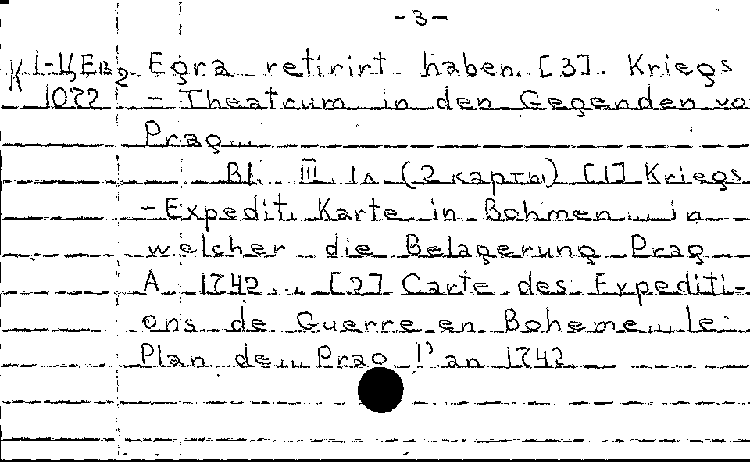 -3-
К 1-Ц,Ев2 Egra retirirt haben. [3]. Kriegs
1022 - Theatrum in den Gegenden vo
Prag...
Bl. III. 1л (2 карты) [1] Kriegs
-Expedit. Karte in Bohmen... in
welcher die Belagerung Prag
A 1742... [2] Carte des Expediti-
ons de Guerre en Boheme... le
Plan de... Prag l'an 1742